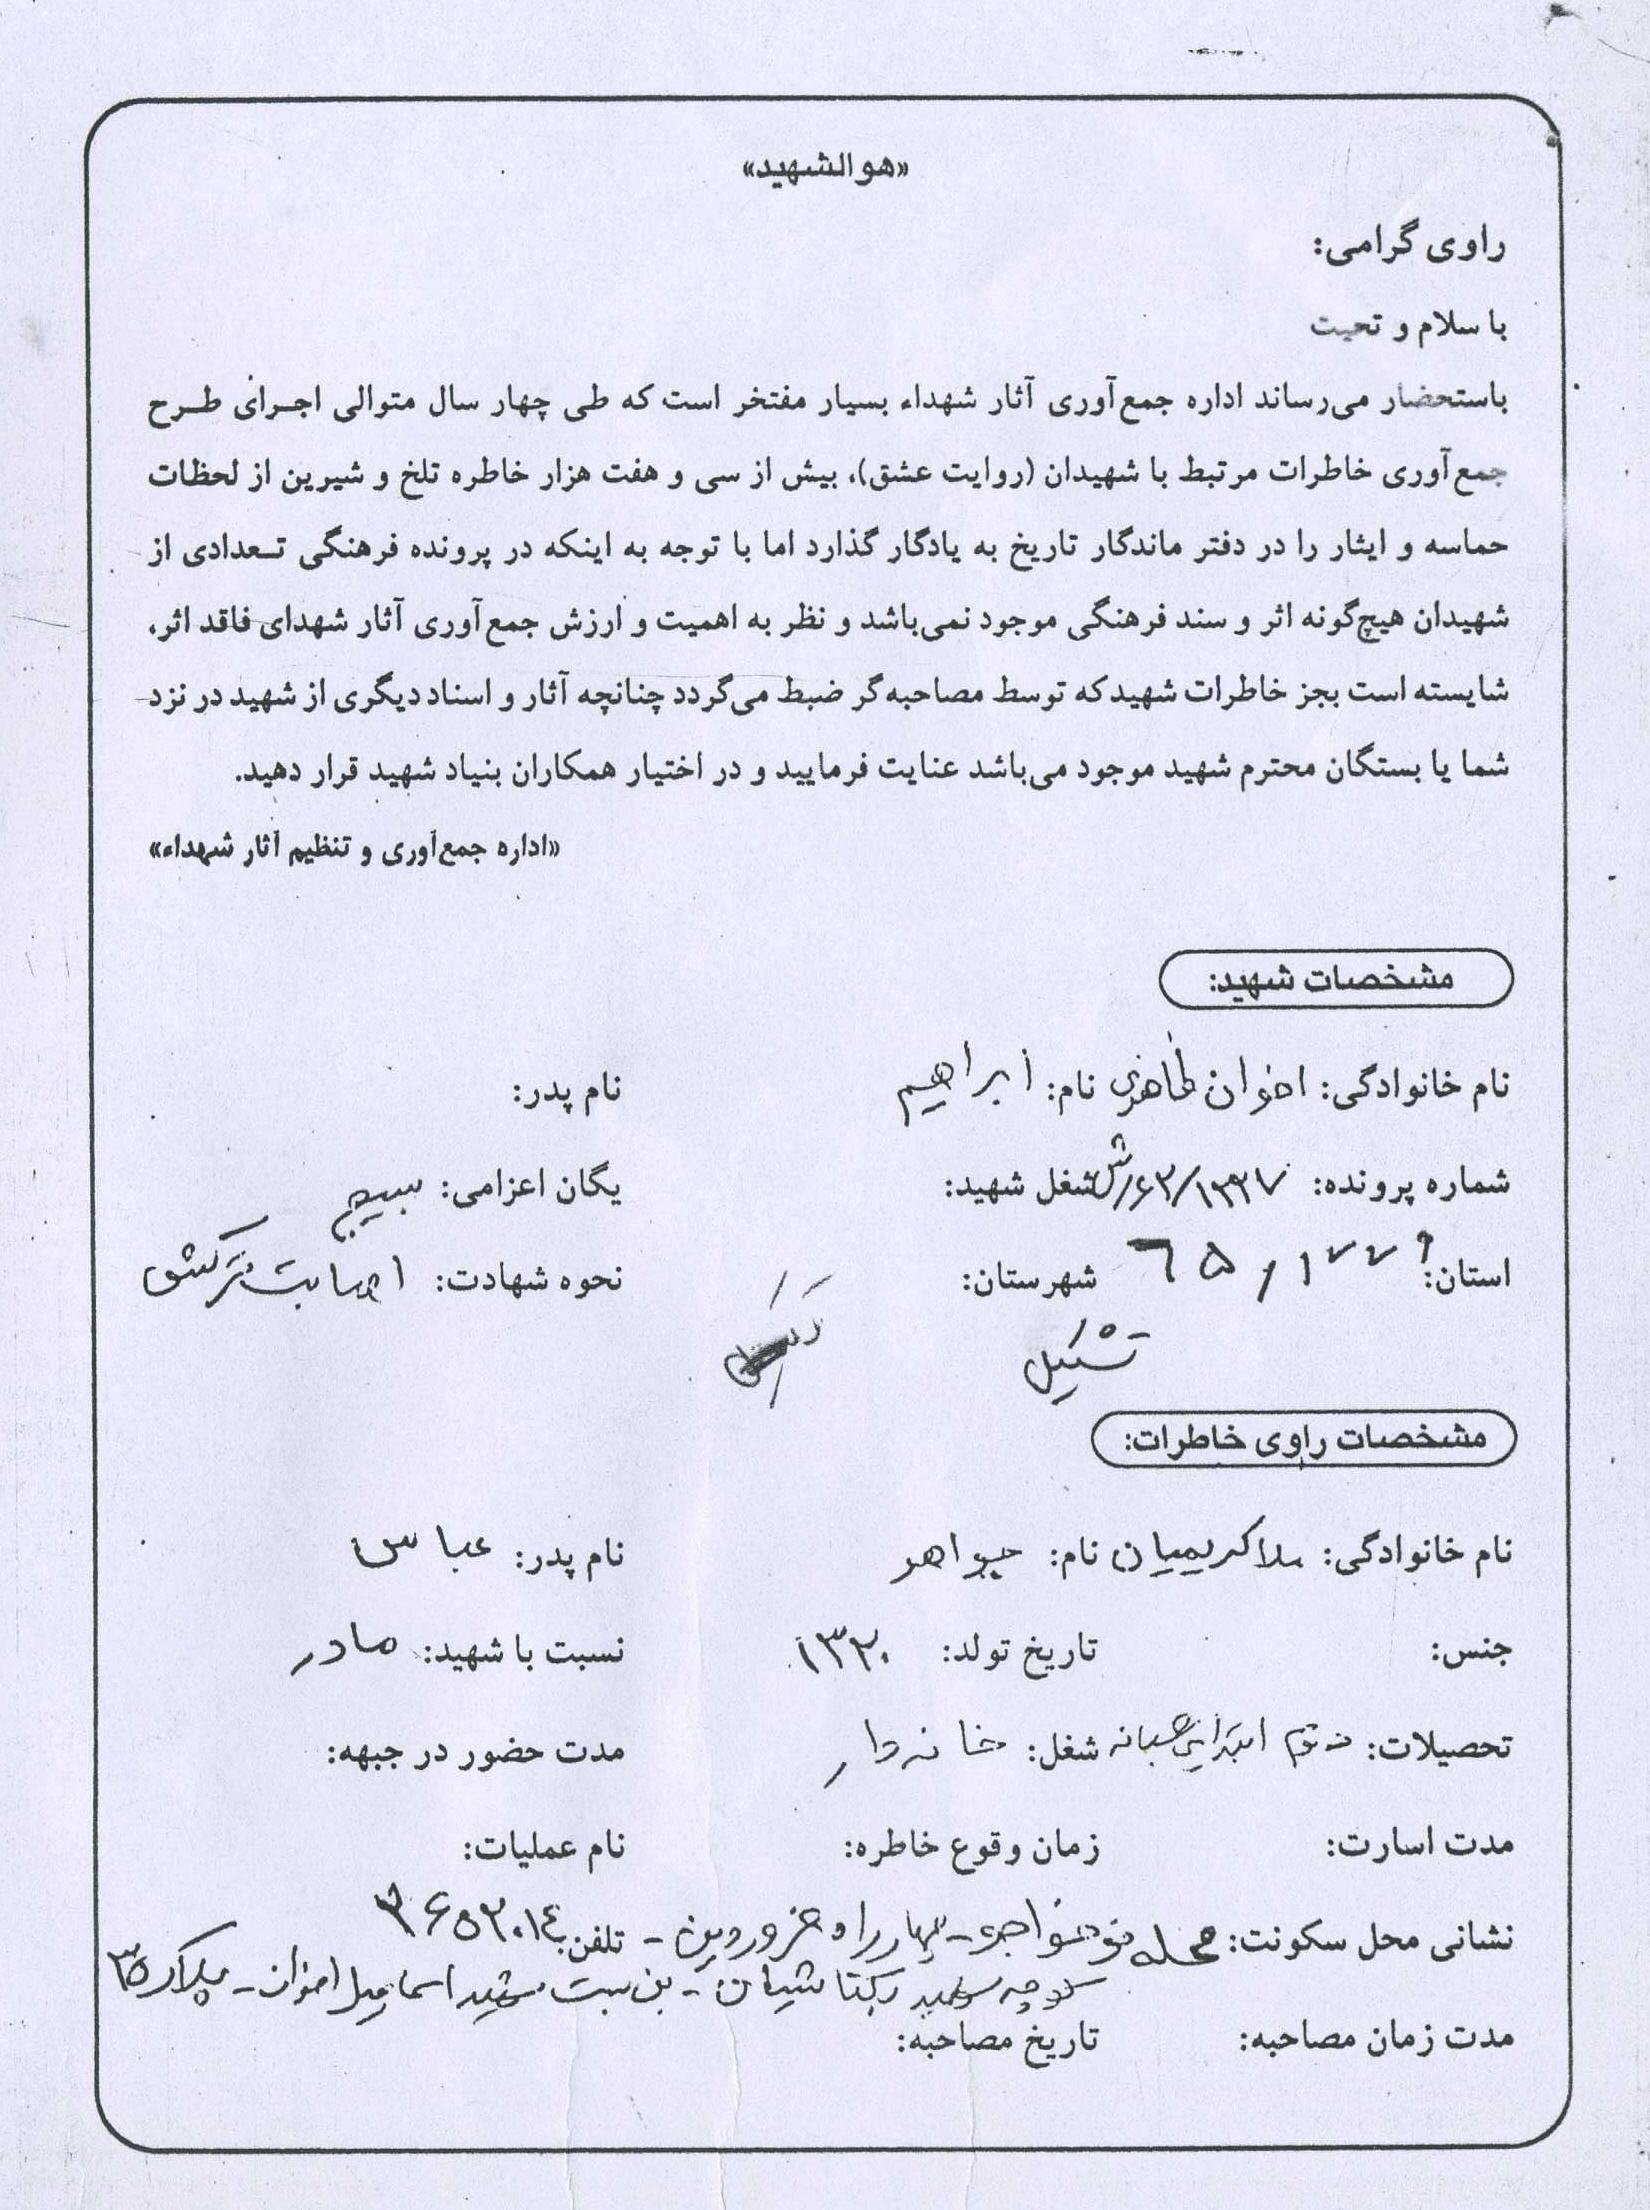 «هوالشهید»
راوی گرامی:
با سلام و تحیت
باستحضار می‌رساند اداره جمع‌آوری آثار شهداء بسیار مفتخر است که طی چهار سال متوالی اجرای طرح
جمع‌آوری خاطرات مرتبط با شهیدان (روایت عشق)، بیش از سی و هفت هزار خاطره تلخ و شیرین از لحظات
حماسه و ایثار را در دفتر ماندگار تاریخ به یادگار گذارد اما با توجه به اینکه در پرونده فرهنگی تعدادی از
شهیدان هیچ‌گونه اثر و سند فرهنگی موجود نمی‌باشد و نظر به اهمیت و ارزش جمع‌آوری آثار شهدای فاقد اثر،
شایسته است بجز خاطرات شهید که توسط مصاحبه‌گر ضبط می‌گردد چنانچه آثار و اسناد دیگری از شهید در نزد
شما یا بستگان محترم شهید موجود می‌باشد عنایت فرمایید و در اختیار همکاران بنیاد شهید قرار دهید.
«اداره جمع‌آوری و تنظیم آثار شهداء»
مشخصات شهید:
نام خانوادگی: اخوان طاهری نام: ابراهیم نام پدر:
شماره پرونده: شغل شهید: یگان اعزامی: بسیج
استان: شهرستان: نحوه شهادت: اصابت ترکش
مشخصات راوی خاطرات:
نام خانوادگی: ملاکریمیان نام: جواهر نام پدر: عباس
جنس: تاریخ تولد: ۱۳۲۰ نسبت با شهید: مادر
تحصیلات: ابتدایی شبانه شغل: خانه دار مدت حضور در جبهه:
مدت اسارت: زمان وقوع خاطره: نام عملیات:
نشانی محل سکونت: محله - چهارراه - تلفن:
کوچه شهید - بن بست شهید اسماعیل اخوان - پلاک ۳۵
مدت زمان مصاحبه: تاریخ مصاحبه: